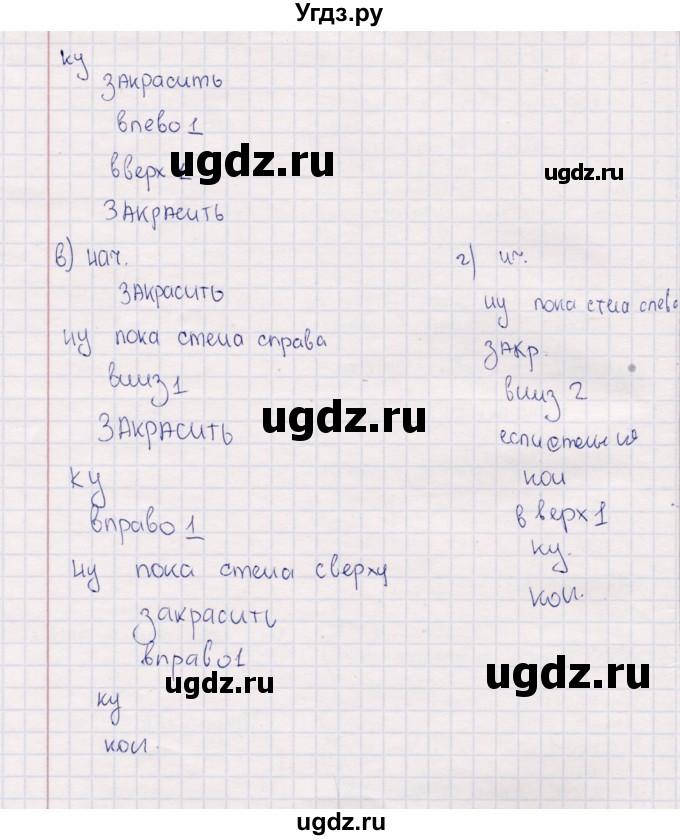 Угдз.ру
ку
закрасить
влево 1
ugdz.ru
вверх
ugdz.ru
закрасить
в) нач.
закрасить
нц пока стена справа
вниз 1
закрасить
ugdz.ru
ку
вправо 1
нц пока стена сверху
закрасить
вправо 1
ugdz.ru
ку
кон.
г) нч.
нц пока стена слева
закр.
вниз 2
если стены не
кон
вверх 1
ку.
кон.
ugdz.ru
ugdz.ru